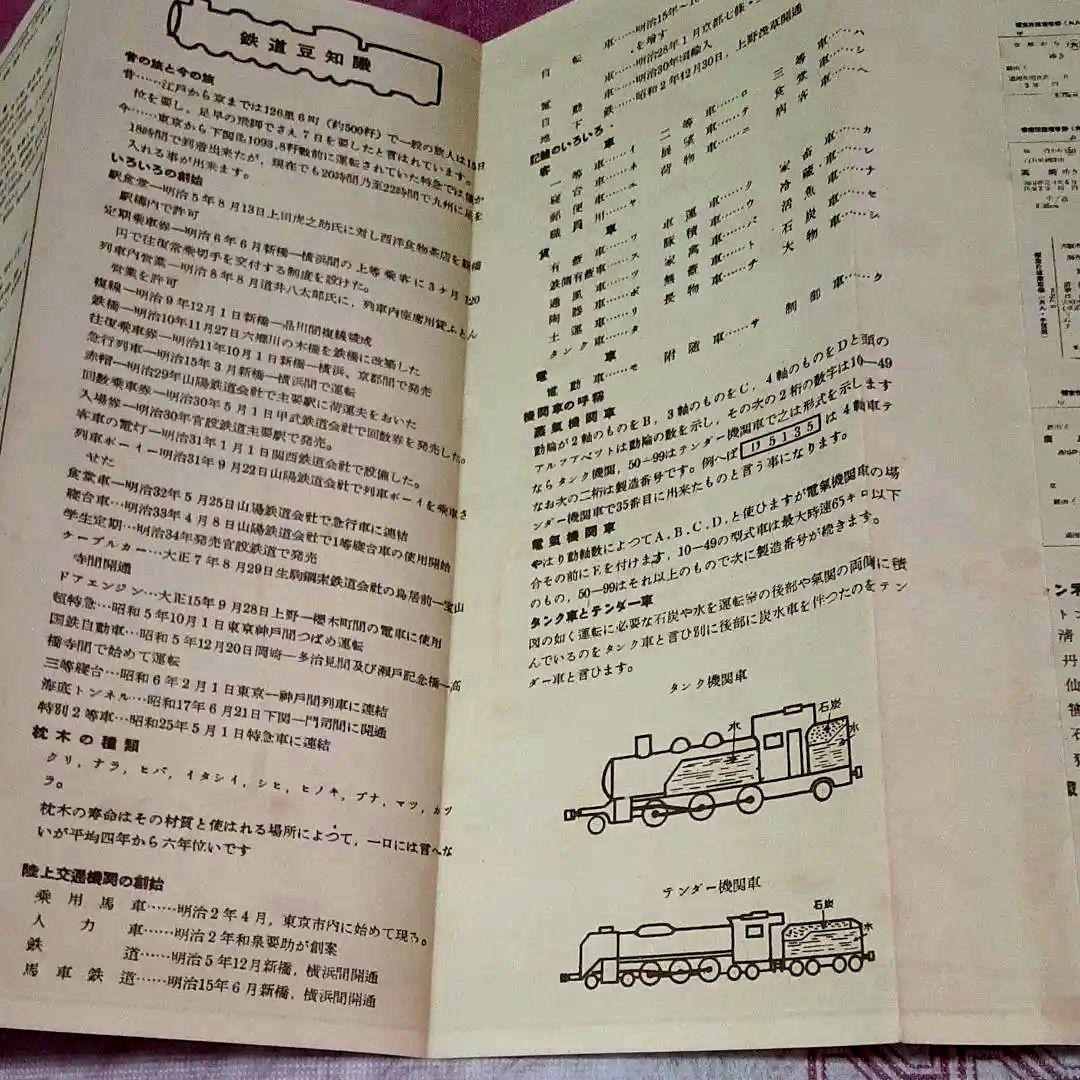 鉄道豆知識
昔の旅と今の旅
昔……江戸から京までは126里6町(約500粁)で一般の旅人は15日
位を要し,足早の飛脚でさえ7日を要したと言はれています。
今……東京から下関迄1093.8粁戦前に運転されていた特急では僅か
18時間で到着出来たが,現在でも20時間乃至22時間で九州に足を
入れる事が出来ます。
いろいろの創始
駅食堂―明治5年8月13日上田虎之助氏に対し西洋食物茶店を新橋
駅構内で許可
定期乗車券―明治6年6月新橋―横浜間の上等乗客に3ケ月120
円で往復常乗切手を交付する制度を設けた。
列車内営業―明治8年8月道井八太郎氏に,列車内座席用貸ふとん
営業を許可
複線―明治9年12月1日新橋―品川間複線竣成
鉄橋―明治10年11月27日六郷川の木橋を鉄橋に改築した
往復乗車券―明治11年10月1日新橋―横浜、京都間で発売
急行列車―明治15年3月新橋―横浜間で運転
赤帽―明治29年山陽鉄道会社で主要駅に荷運夫をおいた
回数乗車券―明治30年5月1日甲武鉄道会社で回数券を発売した。
入場券―明治30年官設鉄道主要駅で発売。
客車の電灯―明治31年1月1日関西鉄道会社で設備した。
列車ボーイ―明治31年9月22日山陽鉄道会社で列車ボーイを乗車さ
せた
食堂車―明治32年5月25日山陽鉄道会社で急行車に連結
寝台車…明治33年4月8日山陽鉄道会社で1等寝台車の使用開始
学生定期…明治34年発売官設鉄道で発売
ケーブルカー…大正7年8月29日生駒鋼索鉄道会社の鳥居前―宝山
寺間開通
ドアエンジン…大正15年9月28日上野―櫻木町間の電車に使用
超特急…昭和5年10月1日東京神戸間つばめ運転
国鉄自動車…昭和5年12月20日岡崎―多治見間及び瀬戸記念橋―高
橋寺間で始めて運転
三等寝台…昭和6年2月1日東京―神戸間列車に連結
海底トンネル…昭和17年6月21日下関―門司間に開通
特別2等車…昭和25年5月1日特急車に連結
枕木の種類
クリ,ナラ,ヒバ,イタシイ,シヒ,ヒノキ,ブナ,マツ,カツ
ラ。
枕木の寿命はその材質と使はれる場所によつて,一口には言へな
いが平均四年から六年位いです
陸上交通機関の創始
乗用馬車……明治2年4月,東京市内に始めて現る。
人力車……明治2年和泉要助が創案
鉄道……明治5年12月新橋,横浜間開通
馬車鉄道……明治15年6月新橋,横浜間開通
車……明治15年～
を増す
自転車……明治28年1月京都七條・
電動車……明治30年頃輸入
自動
地下鉄……昭和2年12月30日,上野浅草開通
記号のいろいろ
客車
一等車……イ 二等車……ロ 三等車……ハ
寝台車……ネ 展望車……テ 食堂車……シ
郵便車……ユ 荷物車……ニ 病客車……ヘ
職用車……ヤ
貨車
有蓋車……ワ 車運車……ク 家畜車……カ
鉄側有蓋車……ス 豚積車……ウ 冷蔵車……レ
通風車……ツ 家禽車……パ 活魚車……ナ
陶器車……ポ 無蓋車……ト 石炭車……セ
土運車……リ 長物車……チ 大物車……シ
タンク車……タ
電車
電動車……モ 附随車……サ 制御車……ク
機関車の呼称
蒸氣機関車
動輪が2軸のものをB,3軸のものをC,4軸のものをDと頭の
アルフアベツトは動輪の数を示し,その次の2桁の数字は10―49
ならタンク機関,50―99はテンダー機関車で之は形式を示します
なお次の二桁は製造番号です。例へば D5135 は4軸車テ
ンダー機関車で35番目に出来たものと言う事になります。
電氣機関車
やはり動軸数によつてA.B.C.D.と使ひますが電氣機関車の場
合その前にEを付けます,10―49の型式車は最大時速65キロ以下
のもの,50―99はそれ以上のもので次に製造番号が続きます。
タンク車とテンダー車
図の如く運転に必要な石炭や水を運転室の後部や氣関の両側に積
んでいるのをタンク車と言ひ別に後部に炭水車を伴つたのをテン
ダー車と言ひます。
タンク機関車
水
石炭
水
テンダー機関車
石炭
水